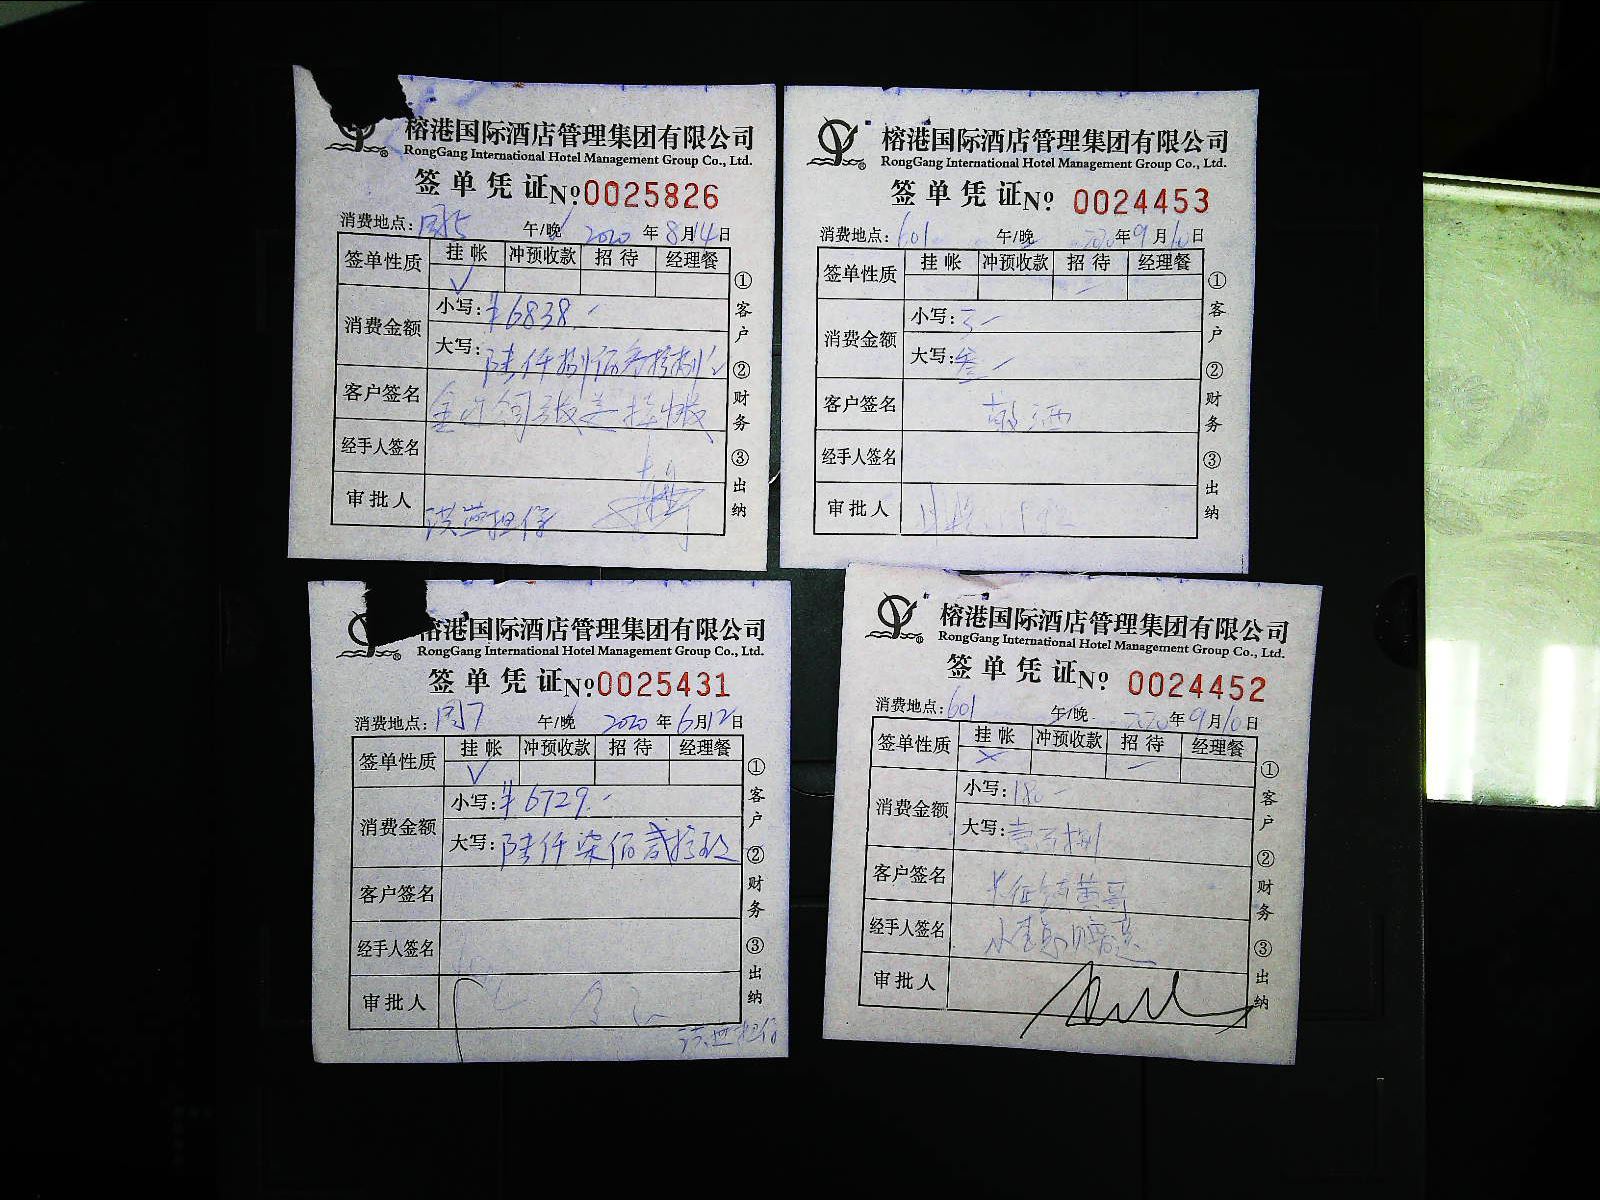 榕港国际酒店管理集团有限公司
RongGang International Hotel Management Group Co., Ltd.
签单凭证 №0025826
消费地点: 午/晚 2020 年 8月14日
签单性质 挂帐 冲预收款 招待 经理餐
✓
消费金额 小写:¥6838.-
大写:陆仟捌佰叁拾捌
客户签名
经手人签名
审批人 洪燕担保
①客户 ②财务 ③出纳
榕港国际酒店管理集团有限公司
RongGang International Hotel Management Group Co., Ltd.
签单凭证 № 0024453
消费地点:601 午/晚 2020年9月10日
签单性质 挂帐 冲预收款 招待 经理餐
消费金额 小写:
大写:叁
客户签名
经手人签名
审批人
①客户 ②财务 ③出纳
榕港国际酒店管理集团有限公司
RongGang International Hotel Management Group Co., Ltd.
签单凭证 №0025431
消费地点: 午/晚 2020 年 6月12日
签单性质 挂帐 冲预收款 招待 经理餐
✓
消费金额 小写:¥6729.-
大写:陆仟柒佰贰拾玖
客户签名
经手人签名
审批人
担保
①客户 ②财务 ③出纳
榕港国际酒店管理集团有限公司
RongGang International Hotel Management Group Co., Ltd.
签单凭证 № 0024452
消费地点:601 午/晚 2020年9月10日
签单性质 挂帐 冲预收款 招待 经理餐
消费金额 小写:180-
大写:壹百捌
客户签名
经手人签名
审批人
①客户 ②财务 ③出纳